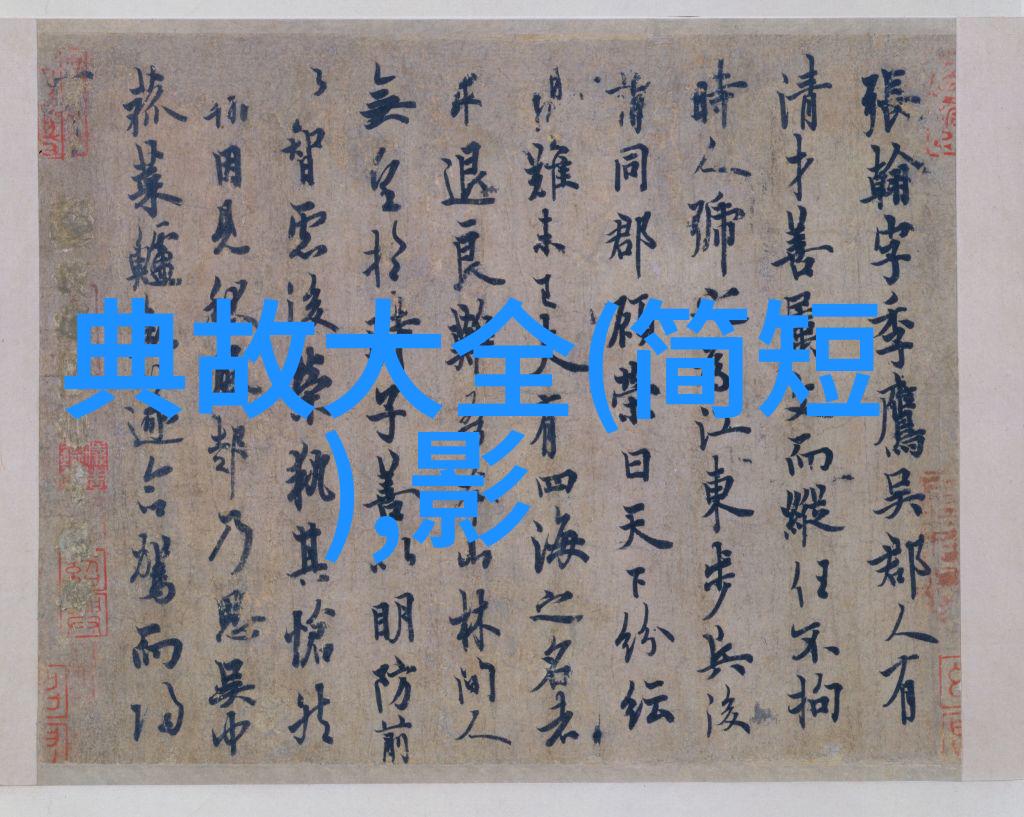 典故大全(简短
),影
張翰字季鷹吳郡人有
清才善屬文而縱任不拘
時人號為江東步兵後
謂同郡顧榮曰天下紛紜
難未已夫有四海之名者
求退良難吾本山林間人
無望於時子善以明防前
以智慮後榮執其愴然
翰因見秋風起乃思吳中
菰菜鱸魚遂命駕而歸